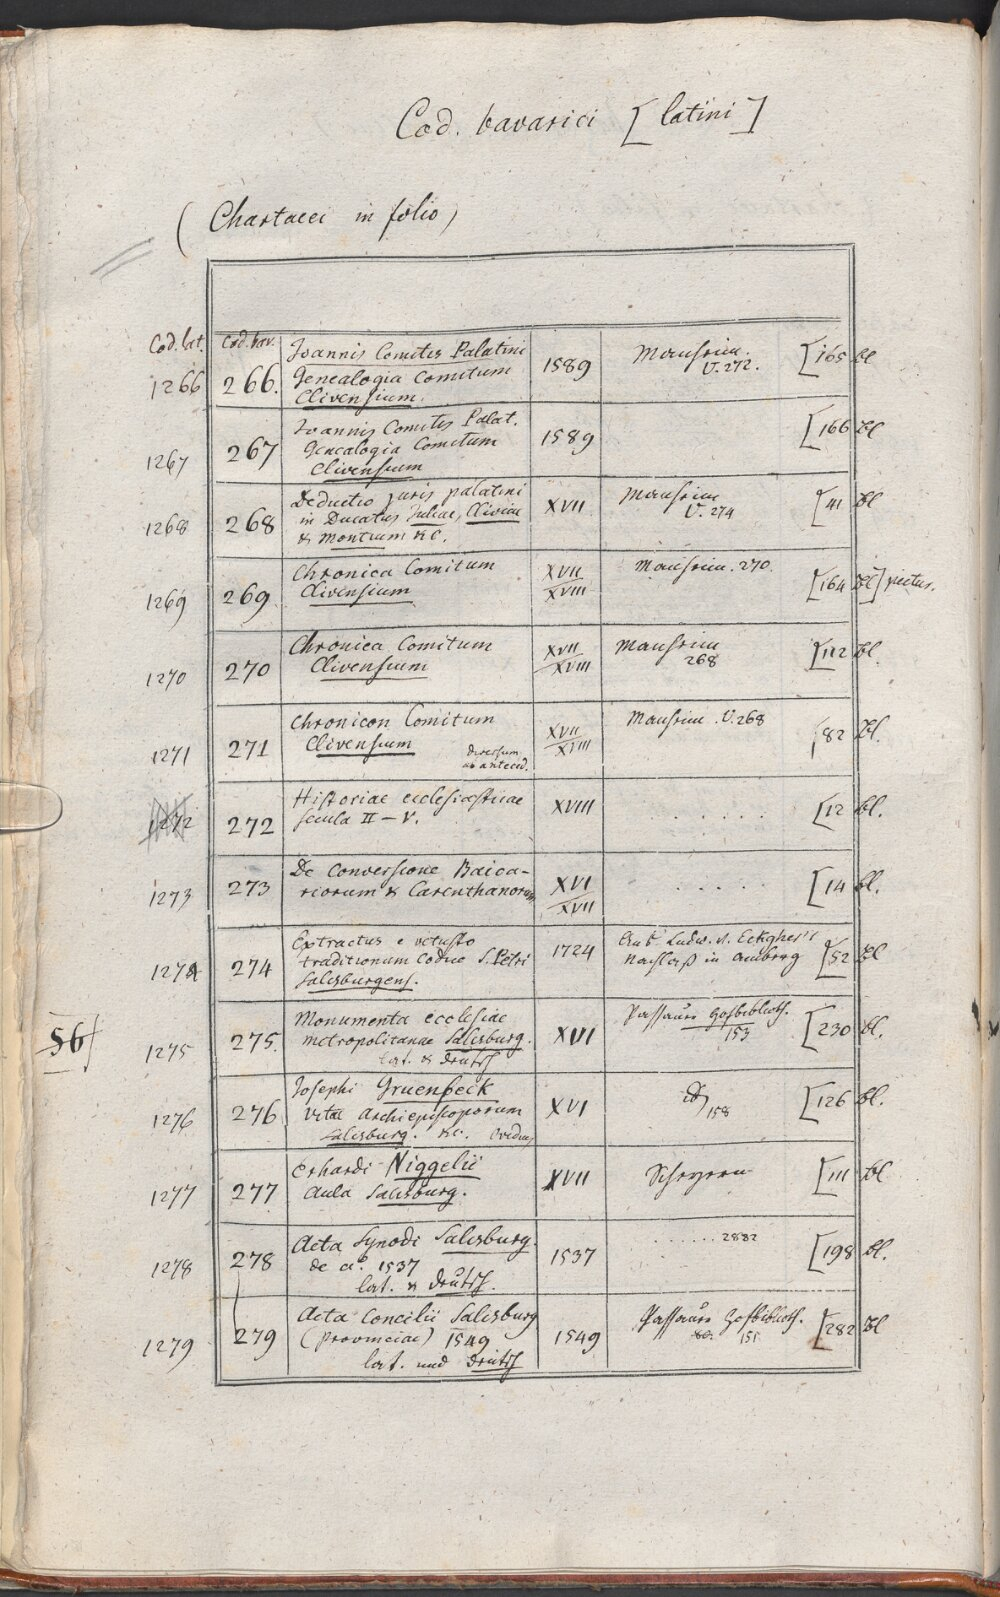 Cod. bavarici [latini]
(Chartacei in folio)
Cod. lat. Cod. bav.
1266 266. Joannis Comitis Palatini 1589 Manheim. [165 bl
Genealogia Comitum U. 272.
Clivensium.
1267 267 Joannis Comitis Palat. 1589 [166 bl
Genealogia Comitum
Clivensium
1268 268 Deductio juris palatini XVII Manheim [41 bl
in Ducatus Juliae, Cliviae U. 274
& Montium &c.
1269 269 Chronica Comitum XVII Manheim. 270. [164 bl] pictus.
Clivensium XVIII
1270 270 Chronica Comitum XVII Manheim [112 bl.
Clivensium XVIII 268
1271 271 Chronicon Comitum XVII Manheim. U. 268 [82 bl.
Clivensium XVIII
diversum
ab anteced.
1272 272 Historiae ecclesiasticae XVIII . . . . . . [12 bl.
secula II – V.
1273 273 De conversione Baioa- XVI . . . . . [14 bl.
riorum & Carenthanorum XVII
1274 274 Extractus e vetusto 1724 Aus Ludw. v. [52 bl
traditionum Codice S. Petri Nachlaß in Amberg
Salisburgens.
56
1275 275. Monumenta ecclesiae XVI Passauer Hofbiblioth. [230 bl.
metropolitanae Salisburg. 153
lat. & deutsch
1276 276 Josephi Gruenbeck XVI 158 [126 bl.
vitae Archiepiscoporum
Salisburg. &c.
1277 277 Erhardi Niggelii XVII Scheyern [111 bl
Aula Salisburg.
1278 278 Acta Synodi Salisburg. 1537 . . . . . . 2882 [198 bl.
de aº. 1537
lat. & deutsch.
1279 279 Acta Concilii Salisburg 1549 Passauer Hofbiblioth. [282 bl
(provinciae) 1549 151
lat. und deutsch